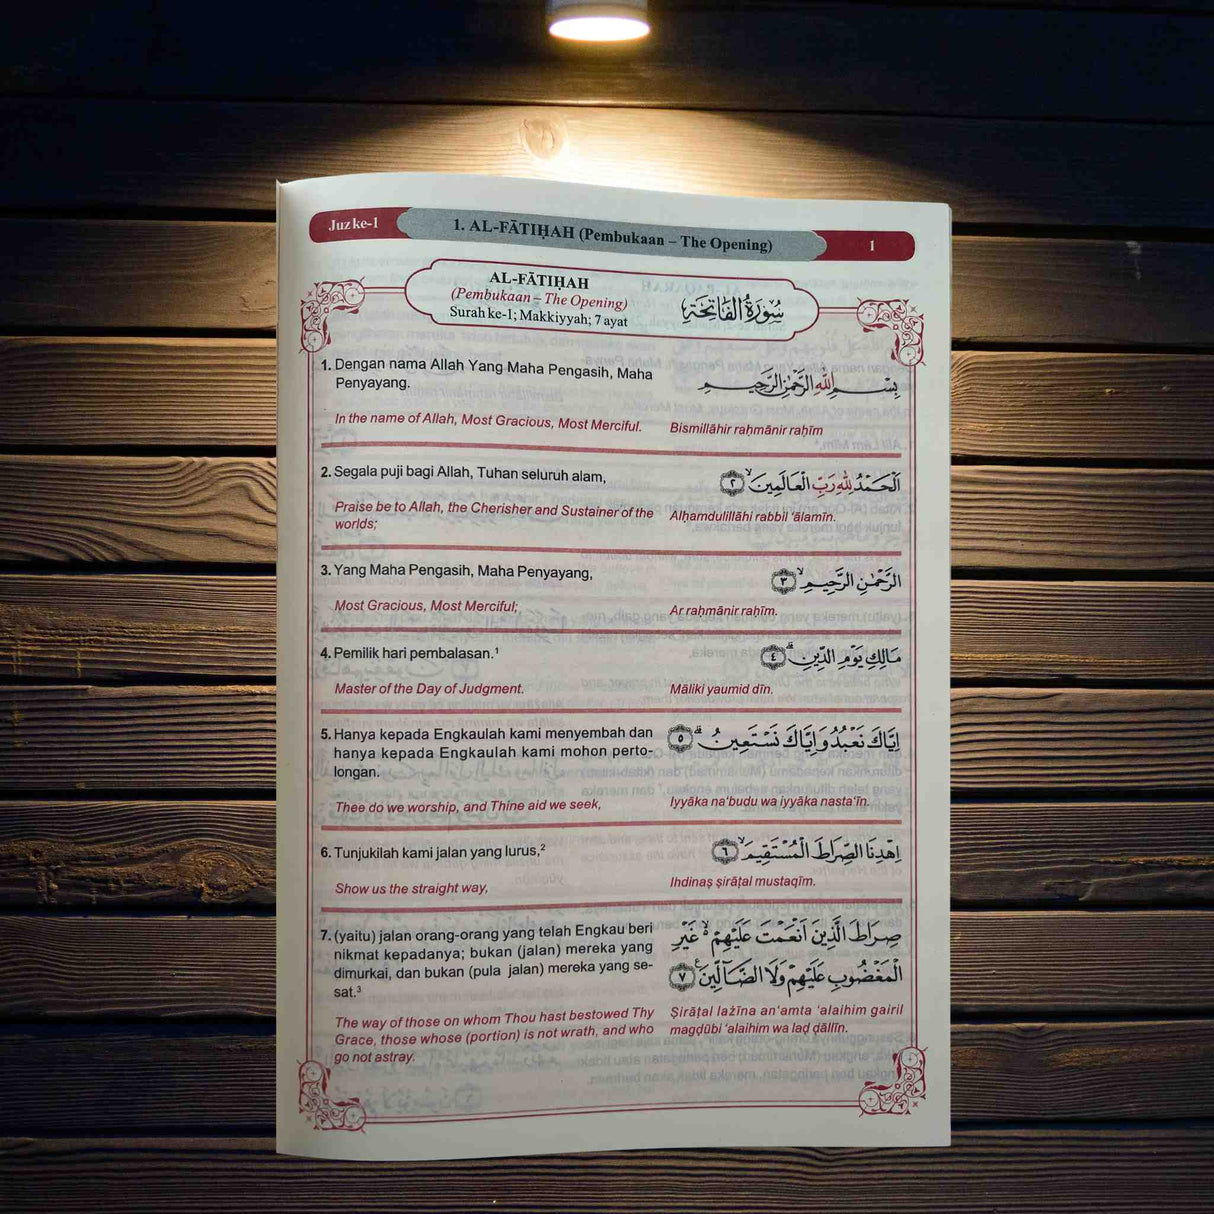 Juz ke-1
1. AL-FĀTIḤAH (Pembukaan – The Opening)
1
AL-FĀTIḤAH
(Pembukaan – The Opening)
Surah ke-1; Makkiyyah; 7 ayat
سُوْرَةُ الْفَاتِحَةِ
1. Dengan nama Allah Yang Maha Pengasih, Maha
Penyayang.
In the name of Allah, Most Gracious, Most Merciful.
بِسْمِ اللّٰهِ الرَّحْمٰنِ الرَّحِيْمِ
Bismillāhir raḥmānir raḥīm
2. Segala puji bagi Allah, Tuhan seluruh alam,
Praise be to Allah, the Cherisher and Sustainer of the
worlds;
اَلْحَمْدُ لِلّٰهِ رَبِّ الْعَالَمِيْنَۙ ٢
Alḥamdulillāhi rabbil ‘ālamīn.
3. Yang Maha Pengasih, Maha Penyayang,
Most Gracious, Most Merciful;
الرَّحْمٰنِ الرَّحِيْمِۙ ٣
Ar raḥmānir raḥīm.
4. Pemilik hari pembalasan.¹
Master of the Day of Judgment.
مَالِكِ يَوْمِ الدِّيْنِۗ ٤
Māliki yaumid dīn.
5. Hanya kepada Engkaulah kami menyembah dan
hanya kepada Engkaulah kami mohon perto-
longan.
Thee do we worship, and Thine aid we seek,
اِيَّاكَ نَعْبُدُ وَاِيَّاكَ نَسْتَعِيْنُۗ ٥
Iyyāka na‘budu wa iyyāka nasta‘īn.
6. Tunjukilah kami jalan yang lurus,²
Show us the straight way,
اِهْدِنَا الصِّرَاطَ الْمُسْتَقِيْمَۙ ٦
Ihdinaṣ ṣirāṭal mustaqīm.
7. (yaitu) jalan orang-orang yang telah Engkau beri
nikmat kepadanya; bukan (jalan) mereka yang
dimurkai, dan bukan (pula jalan) mereka yang se-
sat.³
The way of those on whom Thou hast bestowed Thy
Grace, those whose (portion) is not wrath, and who
go not astray.
صِرَاطَ الَّذِيْنَ اَنْعَمْتَ عَلَيْهِمْ ەۙ غَيْرِ
الْمَغْضُوْبِ عَلَيْهِمْ وَلَا الضَّاۤلِّيْنَࣖ ٧
Ṣirāṭal lażīna an‘amta ‘alaihim gairil
magḍūbi ‘alaihim wa laḍ ḍāllīn.